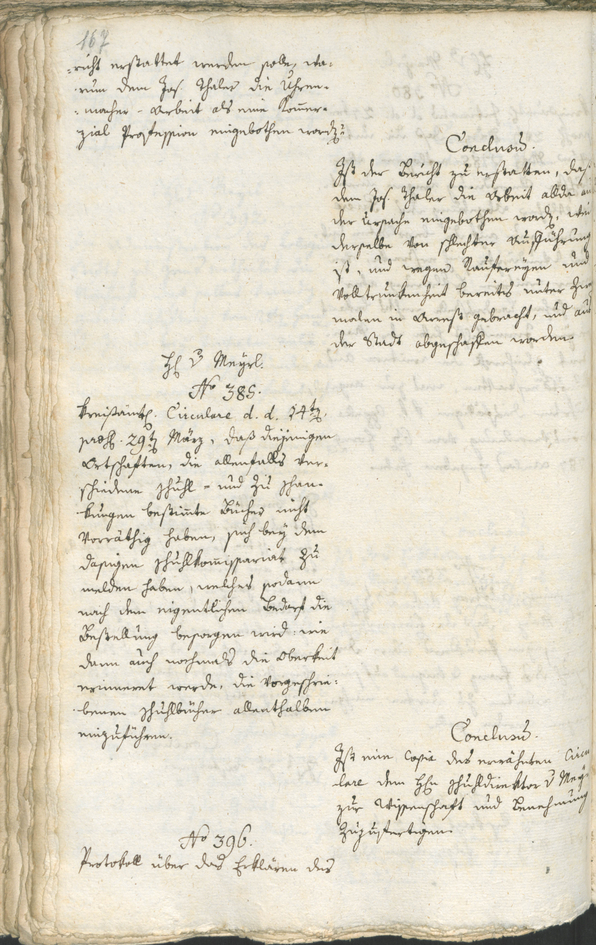 167
richt erstattet werden solle, wa-
rum dem Jos. Thaler die Uhren-
macher-Arbeit als eine Komer-
zial Profession eingebothen word.
Conclusū.
Ist der Bericht zu erstatten, daß
dem Jos. Thaler die Arbeit allda
der Ursache eingebothen word,
derselbe von schlechter Aufführung
ist, und wegen Raufereyen und
Volltrunkenheit bereits
malen in Arrest gebracht, und
der Stadt abgeschaffen worden.
H v Meyrl.
No 385.
Kreisämtl. Circulare d. d. 14t
praes. 29t März, daß diejenigen
Ortschaften, die allenfalls ver-
schiedene Schuhl- und zu Schan-
kungen bestimte Bücher nicht
Vorräthig haben, sich bey dem
dasigen Schuhlkommissariat zu
melden haben, welches sodann
nach dem eigentlichen Bedarf die
Bestellung besorgen wird: wie
dann auch nochmals die Oberkeit
erinneret werde, die vorgeschrie-
benen Schuhlbücher allenthalben
einzuführen.
Conclusū.
Ist eine Copia des erwähnten Circu
lare dem Hn Schuhldirektor v Mey
zur Wissenschaft und Benehmung
zuzufertigen.
No 396.
Protokoll über das Erklären des